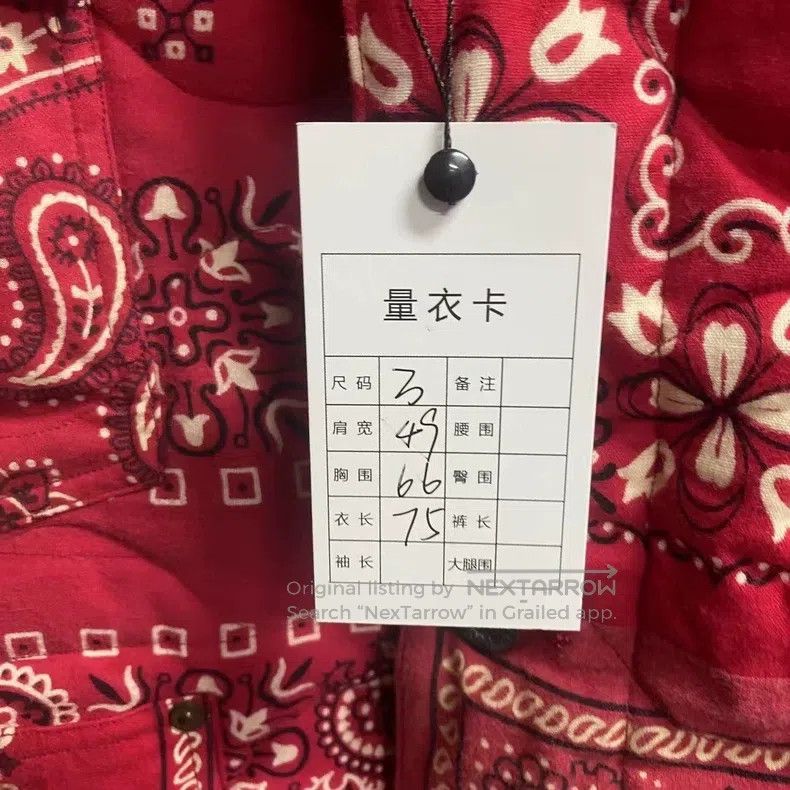 量衣卡
尺码 3 备注
肩宽 49 腰围
胸围 66 臀围
衣长 75 裤长
袖长 大腿围
Original listing by NEXTARROW
Search “NexTarrow” in Grailed app.